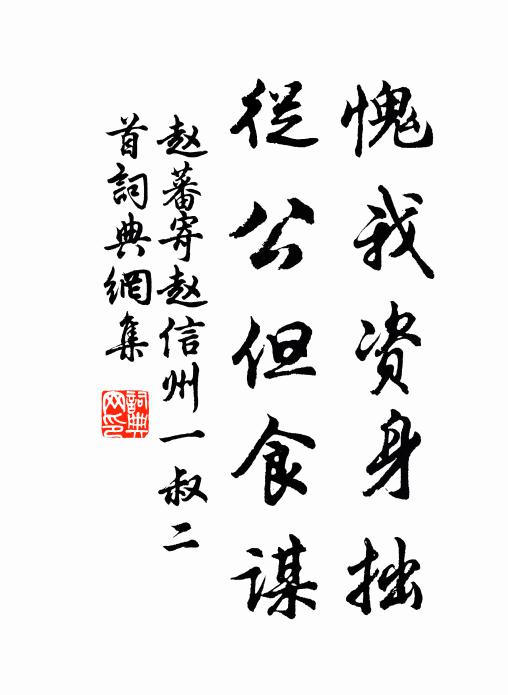 愧我资身拙
從公但食謀
赵蕃寄赵信州一叔二
首詞典網集
詞典网印